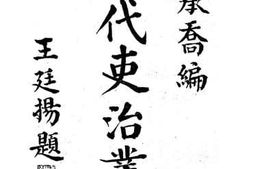 承喬編
代吏治叢
王廷揚題